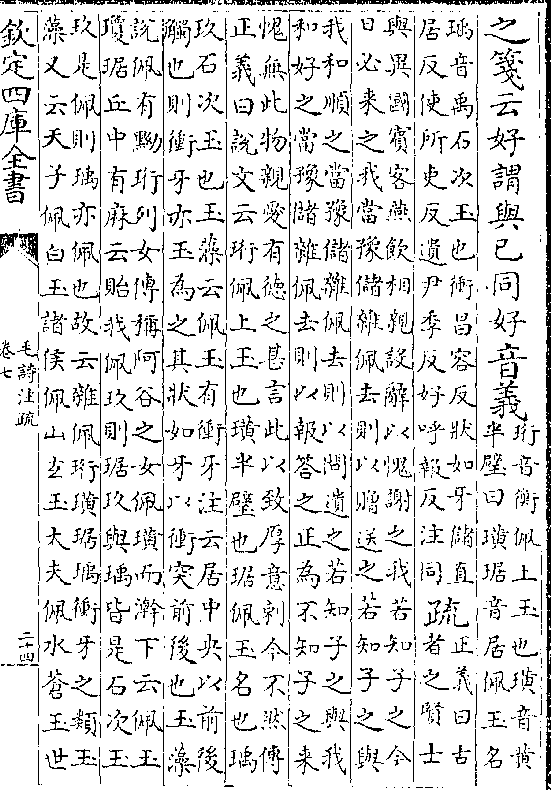 之箋云好謂與已同好音義珩音衡佩上玉也璜音黄
半璧曰璜琚音居佩玉名
瑀音禹石次玉也衝昌容反狀如牙儲直
居反使所吏反遺尹季反好呼報反注同疏正義曰古
者之賢士
與異國賓客燕飲相親設辭以愧謝之我若知子之今
日必来之我當豫儲雜佩去則以贈送之若知子之與
我和順之當豫儲雜佩去則以問遺之若知子之與我
和好之當豫儲雜佩去則以報答之正為不知子之来
愧無此物親愛有德之甚言此以致厚意刺今不然傳
正義曰說文云珩佩上玉也璜半璧也琚佩玉名也瑀
玖石次玉也玉藻云佩玉有衝牙注云居中央以前後
觸也則衝牙亦玉為之其狀如牙以衝突前後也玉藻
說佩有黝珩列女傳稱阿谷之女佩璜而澣下云佩玉
瓊琚丘中有麻云貽我佩玖則琚玖與瑀皆是石次玉
玖是佩則瑀亦佩也故云雜佩珩璜琚瑀衝牙之類玉
藻又云天子佩白玉諸侯佩山玄玉大夫佩水蒼玉世
欽定四庫全書
毛詩注疏
卷七
二十四